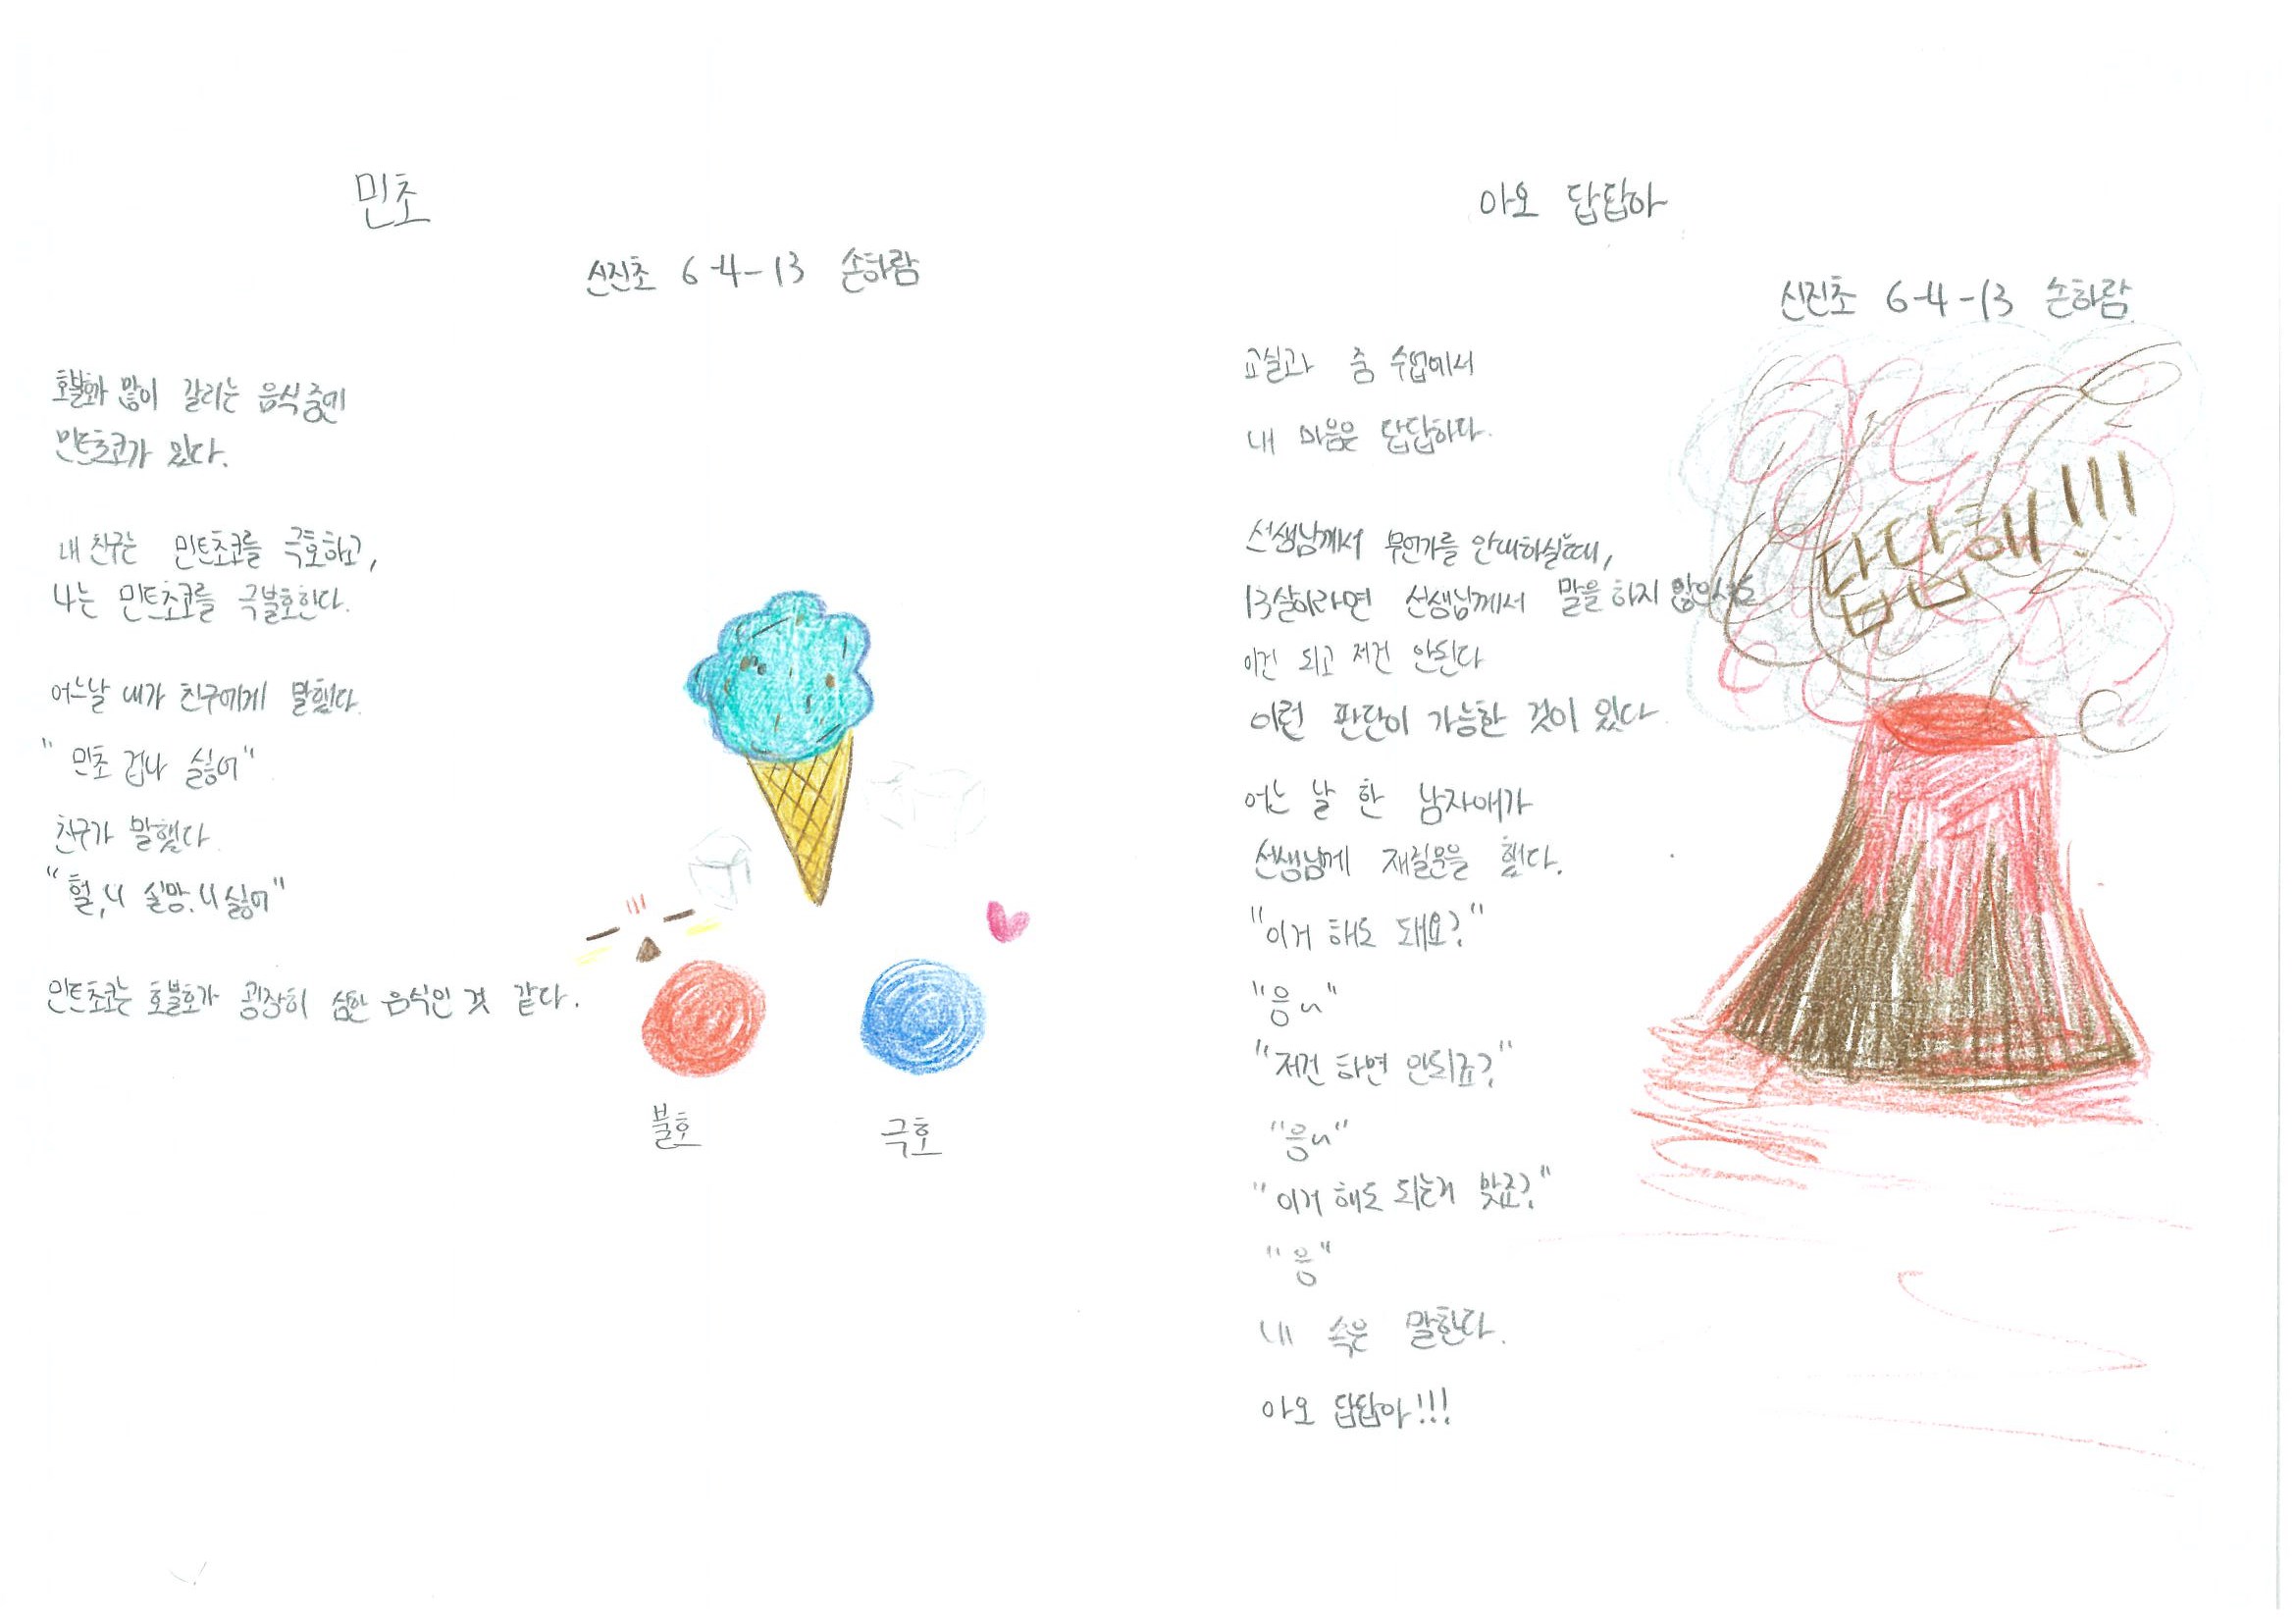 민초
신진초 6-4-13 손하람
호불호가 많이 갈리는 음식중에
민트초코가 있다.
내 친구는 민트초코를 극호하고,
나는 민트초코를 극불호한다.
어느날 내가 친구에게 말했다.
"민초 겁나 싫어"
친구가 말했다.
"헐, 너 실망. 너 싫어"
민트초코는 호불호가 굉장히 심한 음식인 것 같다.
불호
극호
아오 답답아
신진초 6-4-13 손하람
교실과 줌 수업에서
내 마음은 답답하다.
선생님께서 무언가를 안내하실때,
13살이라면 선생님께서 말을 하지 않으셔도
이건 되고 저건 안된다
이런 판단이 가능한 것이 있다
어느 날 한 남자애가
선생님께 재질문을 했다.
"이거 해도 돼요?"
"응~"
"저건 하면 안되죠?"
"응~"
"이거 해도 되는거 맞죠?"
"응"
내 속은 말한다.
아오 답답아!!!
답답해!!!